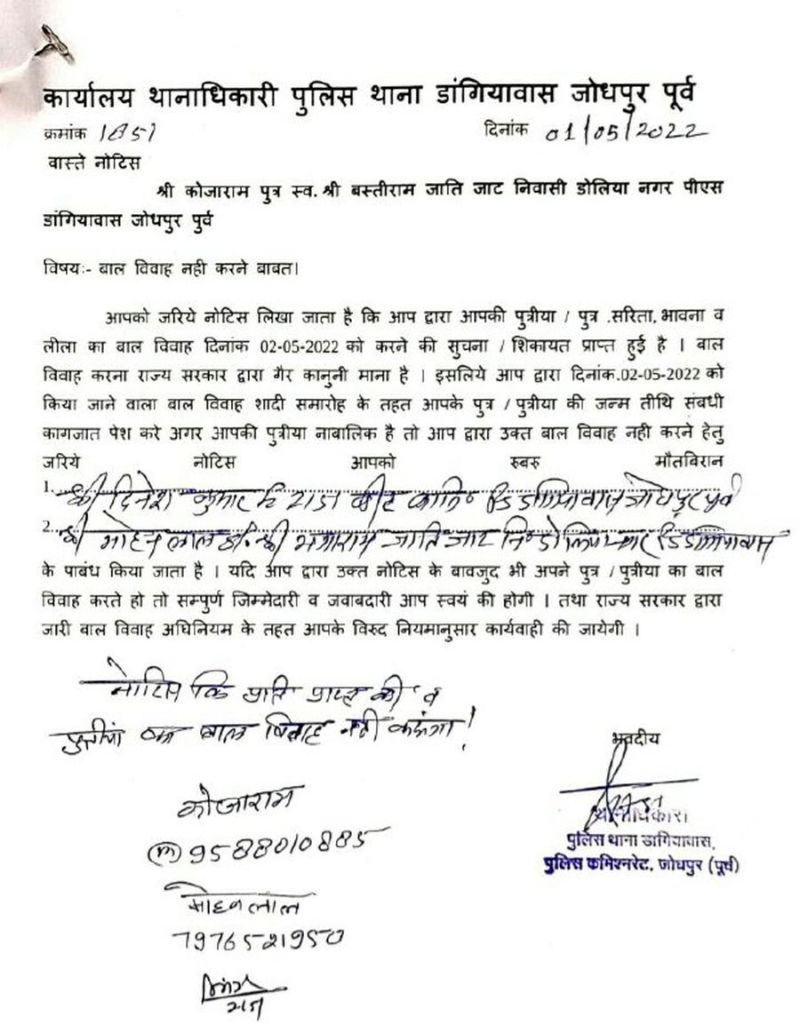 कार्यालय थानाधिकारी पुलिस थाना डांगियावास जोधपुर पूर्व
क्रमांक 1851 दिनांक 01/05/2022
वास्ते नोटिस
श्री कोजाराम पुत्र स्व. श्री बस्तीराम जाति जाट निवासी डोलिया नगर पीएस
डांगियावास जोधपुर पुर्व
विषयः- बाल विवाह नही करने बाबत।
आपको जरिये नोटिस लिखा जाता है कि आप द्वारा आपकी पुत्रीया / पुत्र .सरिता, भावना व
लीला का बाल विवाह दिनांक 02-05-2022 को करने की सुचना / शिकायत प्राप्त हुई है । बाल
विवाह करना राज्य सरकार द्वारा गैर कानुनी माना है । इसलिये आप द्वारा दिनांक.02-05-2022 को
किया जाने वाला बाल विवाह शादी समारोह के तहत आपके पुत्र / पुत्रीया की जन्म तीथि संबधी
कागजात पेश करे अगर आपकी पुत्रीया नाबालिक है तो आप द्वारा उक्त बाल विवाह नही करने हेतु
जरिये नोटिस आपको रुबरु मौतबिरान
1. श्री दिनेश कुमार जोधपुर पुर्व
2. श्री मोहन लाल श्री जाति जाट नि. डोलिया नगर
के पाबंध किया जाता है । यदि आप द्वारा उक्त नोटिस के बावजुद भी अपने पुत्र / पुत्रीया का बाल
विवाह करते हो तो सम्पुर्ण जिम्मेदारी व जवाबदारी आप स्वयं की होगी । तथा राज्य सरकार द्वारा
जारी बाल विवाह अधिनियम के तहत आपके विरुद नियमानुसार कार्यवाही की जायेगी ।
नोटिस कि प्रति प्राप्त की व
पुत्रीयां का बाल विवाह नही करूंगा!
भवदीय
कोजाराम
थानाधिकारी
(m) 9588010885
पुलिस थाना डांगियावास,
पुलिस कमिश्नरेट, जोधपुर (पूर्व)
मोहन लाल
7976521950